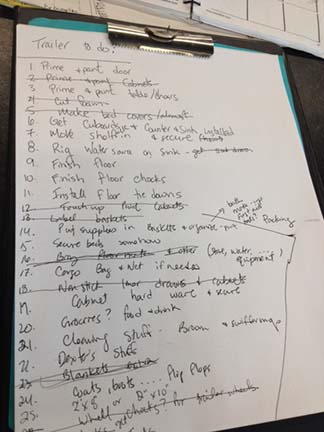 Trailer to do:
1. Prime + paint door
2. Prime + paint Cabinets
3. Prime + paint table/chairs
4. Cut foam
5. Make bed covers
6. Get Cuboards + Counter + Sink installed
7. Move shelf in + secure
8. Rig Water source on Sink
9. Finish floor
10. Finish floor chocks
11. Install Floor tie downs
12. Touch up Paint Cabinets
13. Label baskets
14. Put supplies in baskets + organize
Packing
15. Secure beds somehow
16. Bring floor mats + other (stove, water, .... equipment)
17. Cargo Bag + Net if needed
18. Non stick liner drawers + cabinets
19. Cabinet hard ware + secure
20. Groceries? food + drink
21. Cleaning Stuff - Broom +
22. Dexter's Stuff
23. Blankets extra
24. Coats, boots.... Flip Flops
25. 2"x8" or 2"x10"
wheel chocks? for trailer wheels